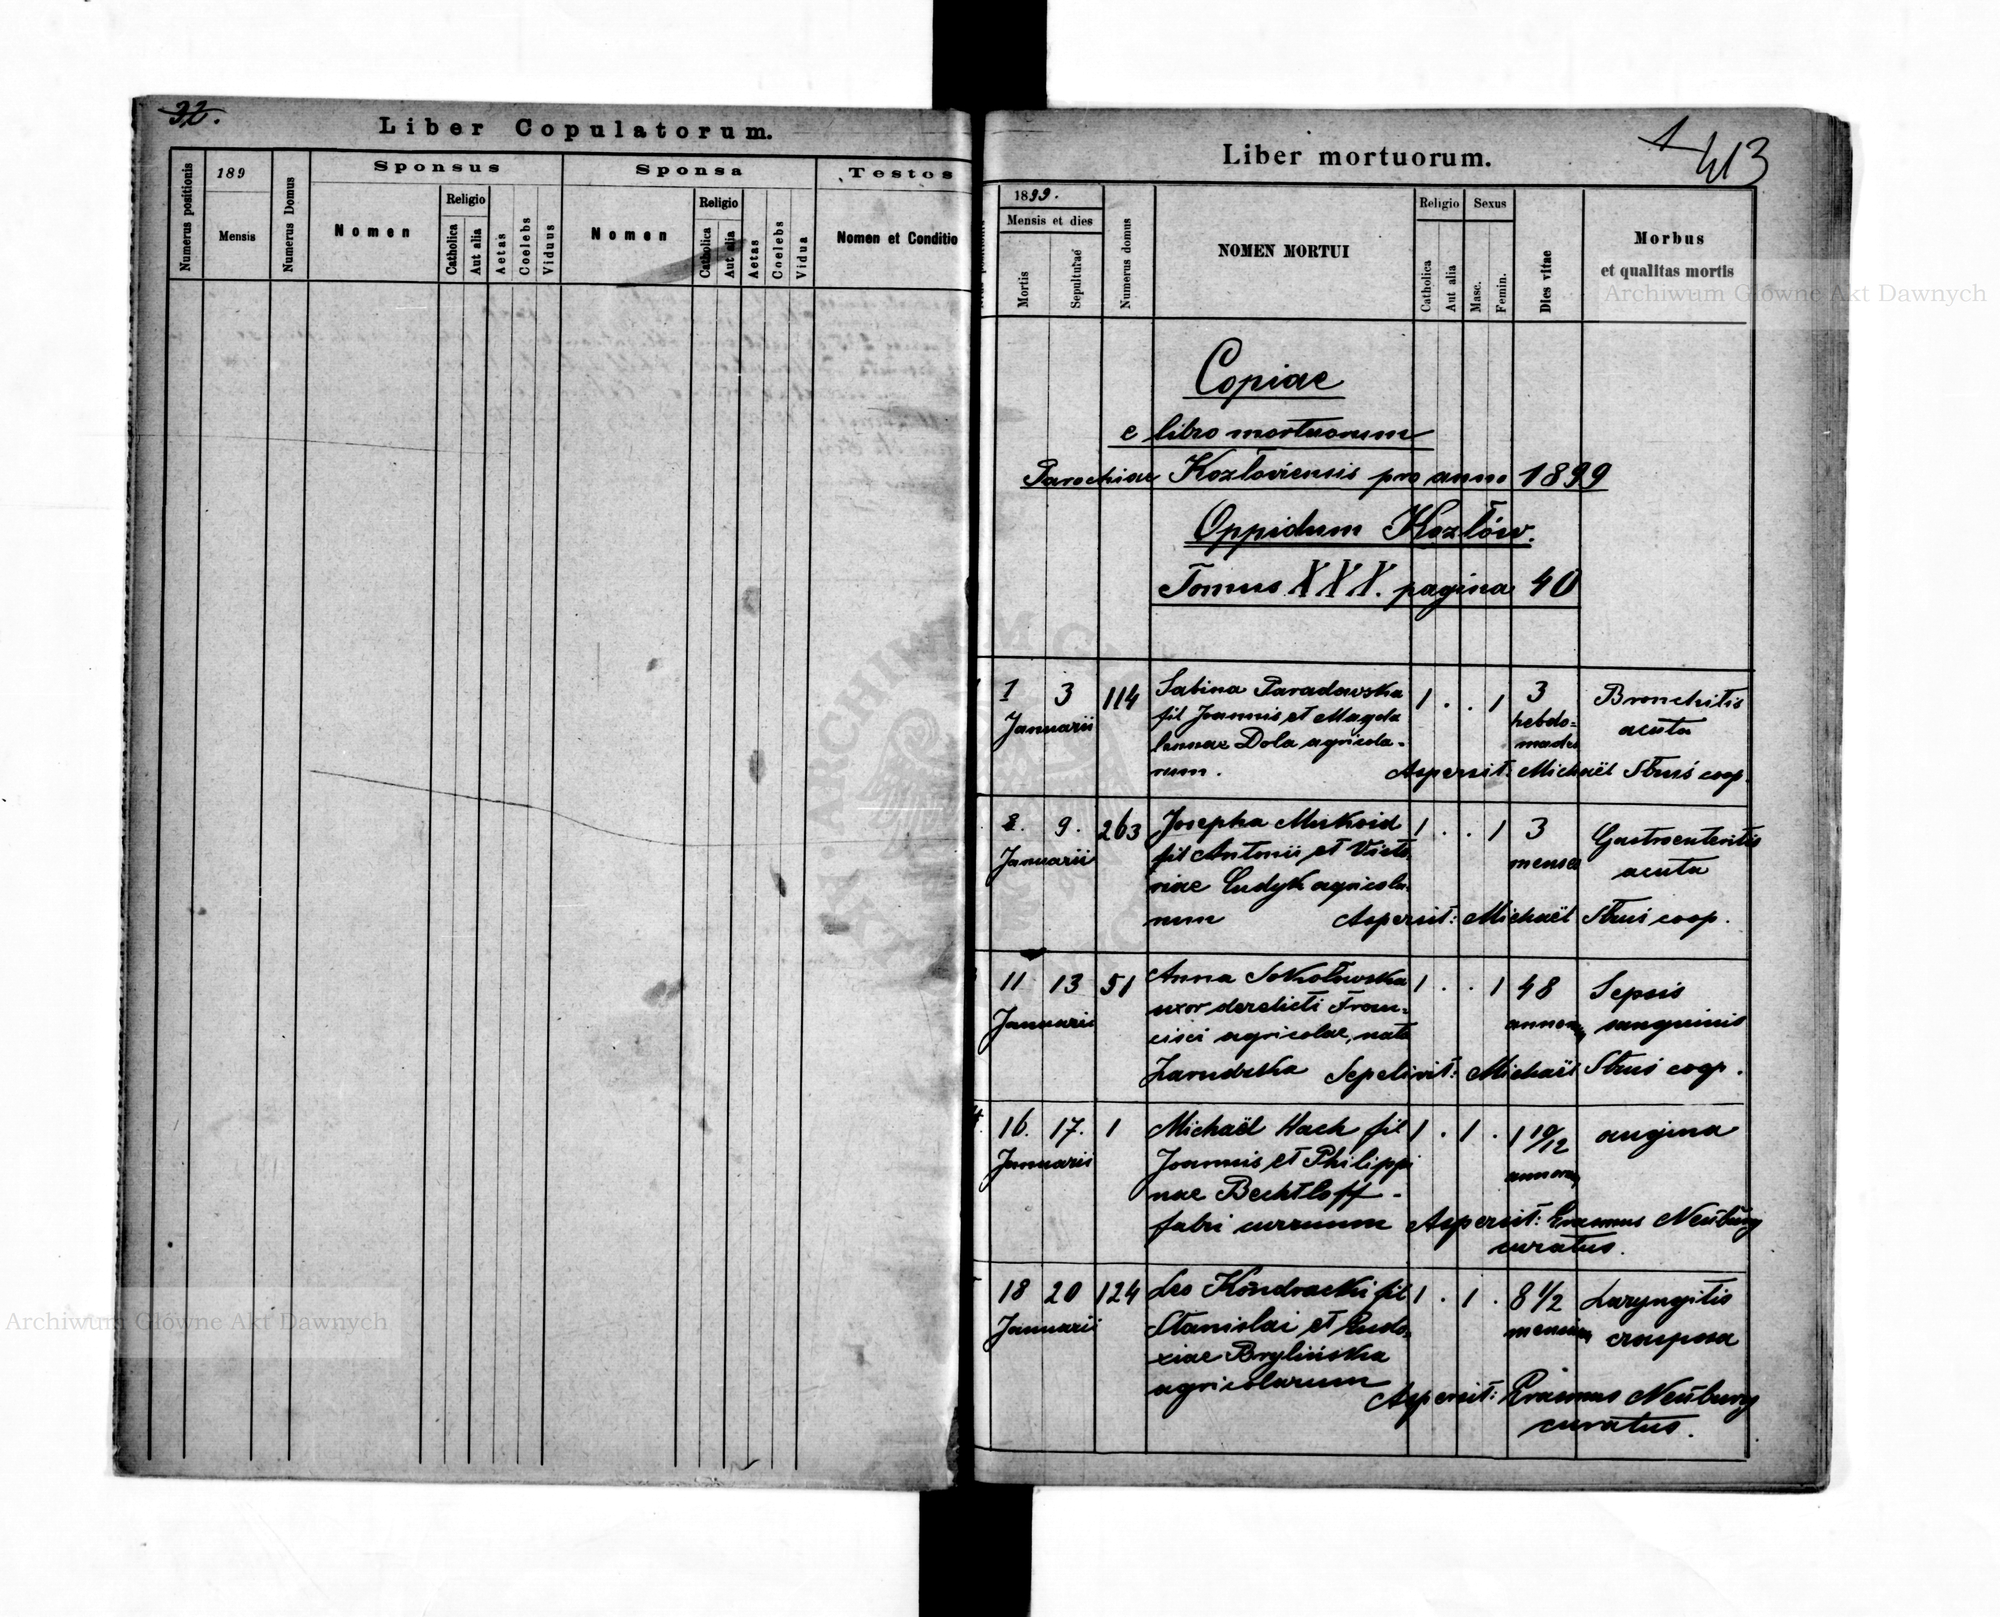 32.
Liber Copulatorum.
Numerus positionis
189
Mensis
Numerus Domus
Sponsus
Nomen
Religio
Catholica
Aut alia
Aetas
Coelebs
Viduus
Sponsa
Nomen
Religio
Catholica
Aut alia
Aetas
Coelebs
Vidua
Testes
Nomen et Conditio
Liber mortuorum.
1
413
1899.
Mensis et dies
Mortis
Sepulturae
Numerus domus
NOMEN MORTUI
Religio
Catholica
Aut alia
Sexus
Masc.
Femin.
Dies vitae
Morbus
et qualitas mortis
Archiwum Główne Akt Dawnych
Copiae
e libro mortuorum
Parochiae Kozłoviensis pro anno 1899
Oppidum Kozłów.
Tomus XXX. pagina 40
1 3 114 Sabina Paradowska 1 . . 1 3 Bronchitis
Januarii fil Joannis et Magda hebdo= acuta
lennae Dola agricola- madae
rum. Aspersit: Michaël Struś coop.
8. 9. 263 Josepha Mukoid 1 . . 1 3 Gastroenteritis
Januarii fil Antonii et Victo menses acuta
riae Gudyk agricola-
rum Aspersit: Michaël Struś coop.
11 13 51 Anna Sokołowska 1 . . 1 48 Sepsis
Januarii uxor derelicti Fran- annorum sanguinis
cisci agricolae, nata
Zarudzka Sepelivit: Michaël Struś coop.
4. 16. 17. 1 Michaël Hach fil 1 . 1 . 1 10/12 angina
Januarii Joannis et Philippi annorum
nae Bechtloff -
fabri currum Aspersit: Erasmus Neuburg
curatus.
18 20 124 Leo Kondracki fil 1 . 1 . 8 1/2 Laryngitis
Januarii Stanislai et Eudo- mensium crouposa
xiae Brylińska
agricolarum Aspersit: Erasmus Neuburg
curatus.
Archiwum Główne Akt Dawnych